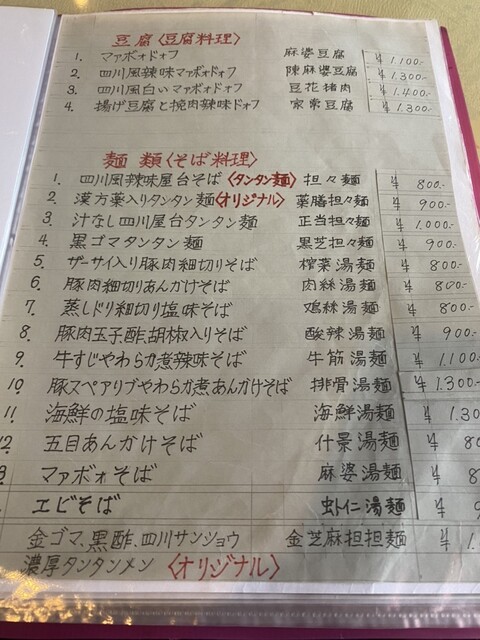 豆腐〈豆腐料理〉
1. マァボォドォフ 麻婆豆腐 ¥1.100.-
2. 四川風辣味マァボォドォフ 陳麻婆豆腐 ¥1.300.-
3. 四川風白いマァボォドォフ 豆花猪肉 ¥1.400.-
4. 揚げ豆腐と挽肉辣味ドォフ 家常豆腐 ¥1.300.-
麺類〈そば料理〉
1. 四川風辣味屋台そば〈タンタン麺〉 担々麺 ¥800.-
2. 漢方薬入りタンタン麺〈オリジナル〉 薬膳担々麺 ¥900.-
3. 汁なし四川屋台タンタン麺 正当担々麺 ¥1.000.-
4. 黒ゴマタンタン麺 黒芝担々麺 ¥900.-
5. ザーサイ入り豚肉細切りそば 榨菜湯麺 ¥800.-
6. 豚肉細切りあんかけそば 肉絲湯麺 ¥800.-
7. 蒸しドリ細切り塩味そば 鶏絲湯麺 ¥800.-
8. 豚肉玉子酢、胡椒入りそば 酸辣湯麺 ¥900.-
9. 牛すじやわらか煮辣味そば 牛筋湯麺 ¥1.100.-
10. 豚スペアリブやわらか煮あんかけそば 排骨湯麺 ¥1.300.-
11. 海鮮の塩味そば 海鮮湯麺 ¥1.30
12. 五目あんかけそば 什景湯麺 ¥80
3. マァボォそば 麻婆湯麺 ¥8
エビそば 虾仁湯麺 ¥
金ゴマ、黒酢、四川サンショウ 金芝麻担担麺 ¥1.
濃厚タンタンメン〈オリジナル〉